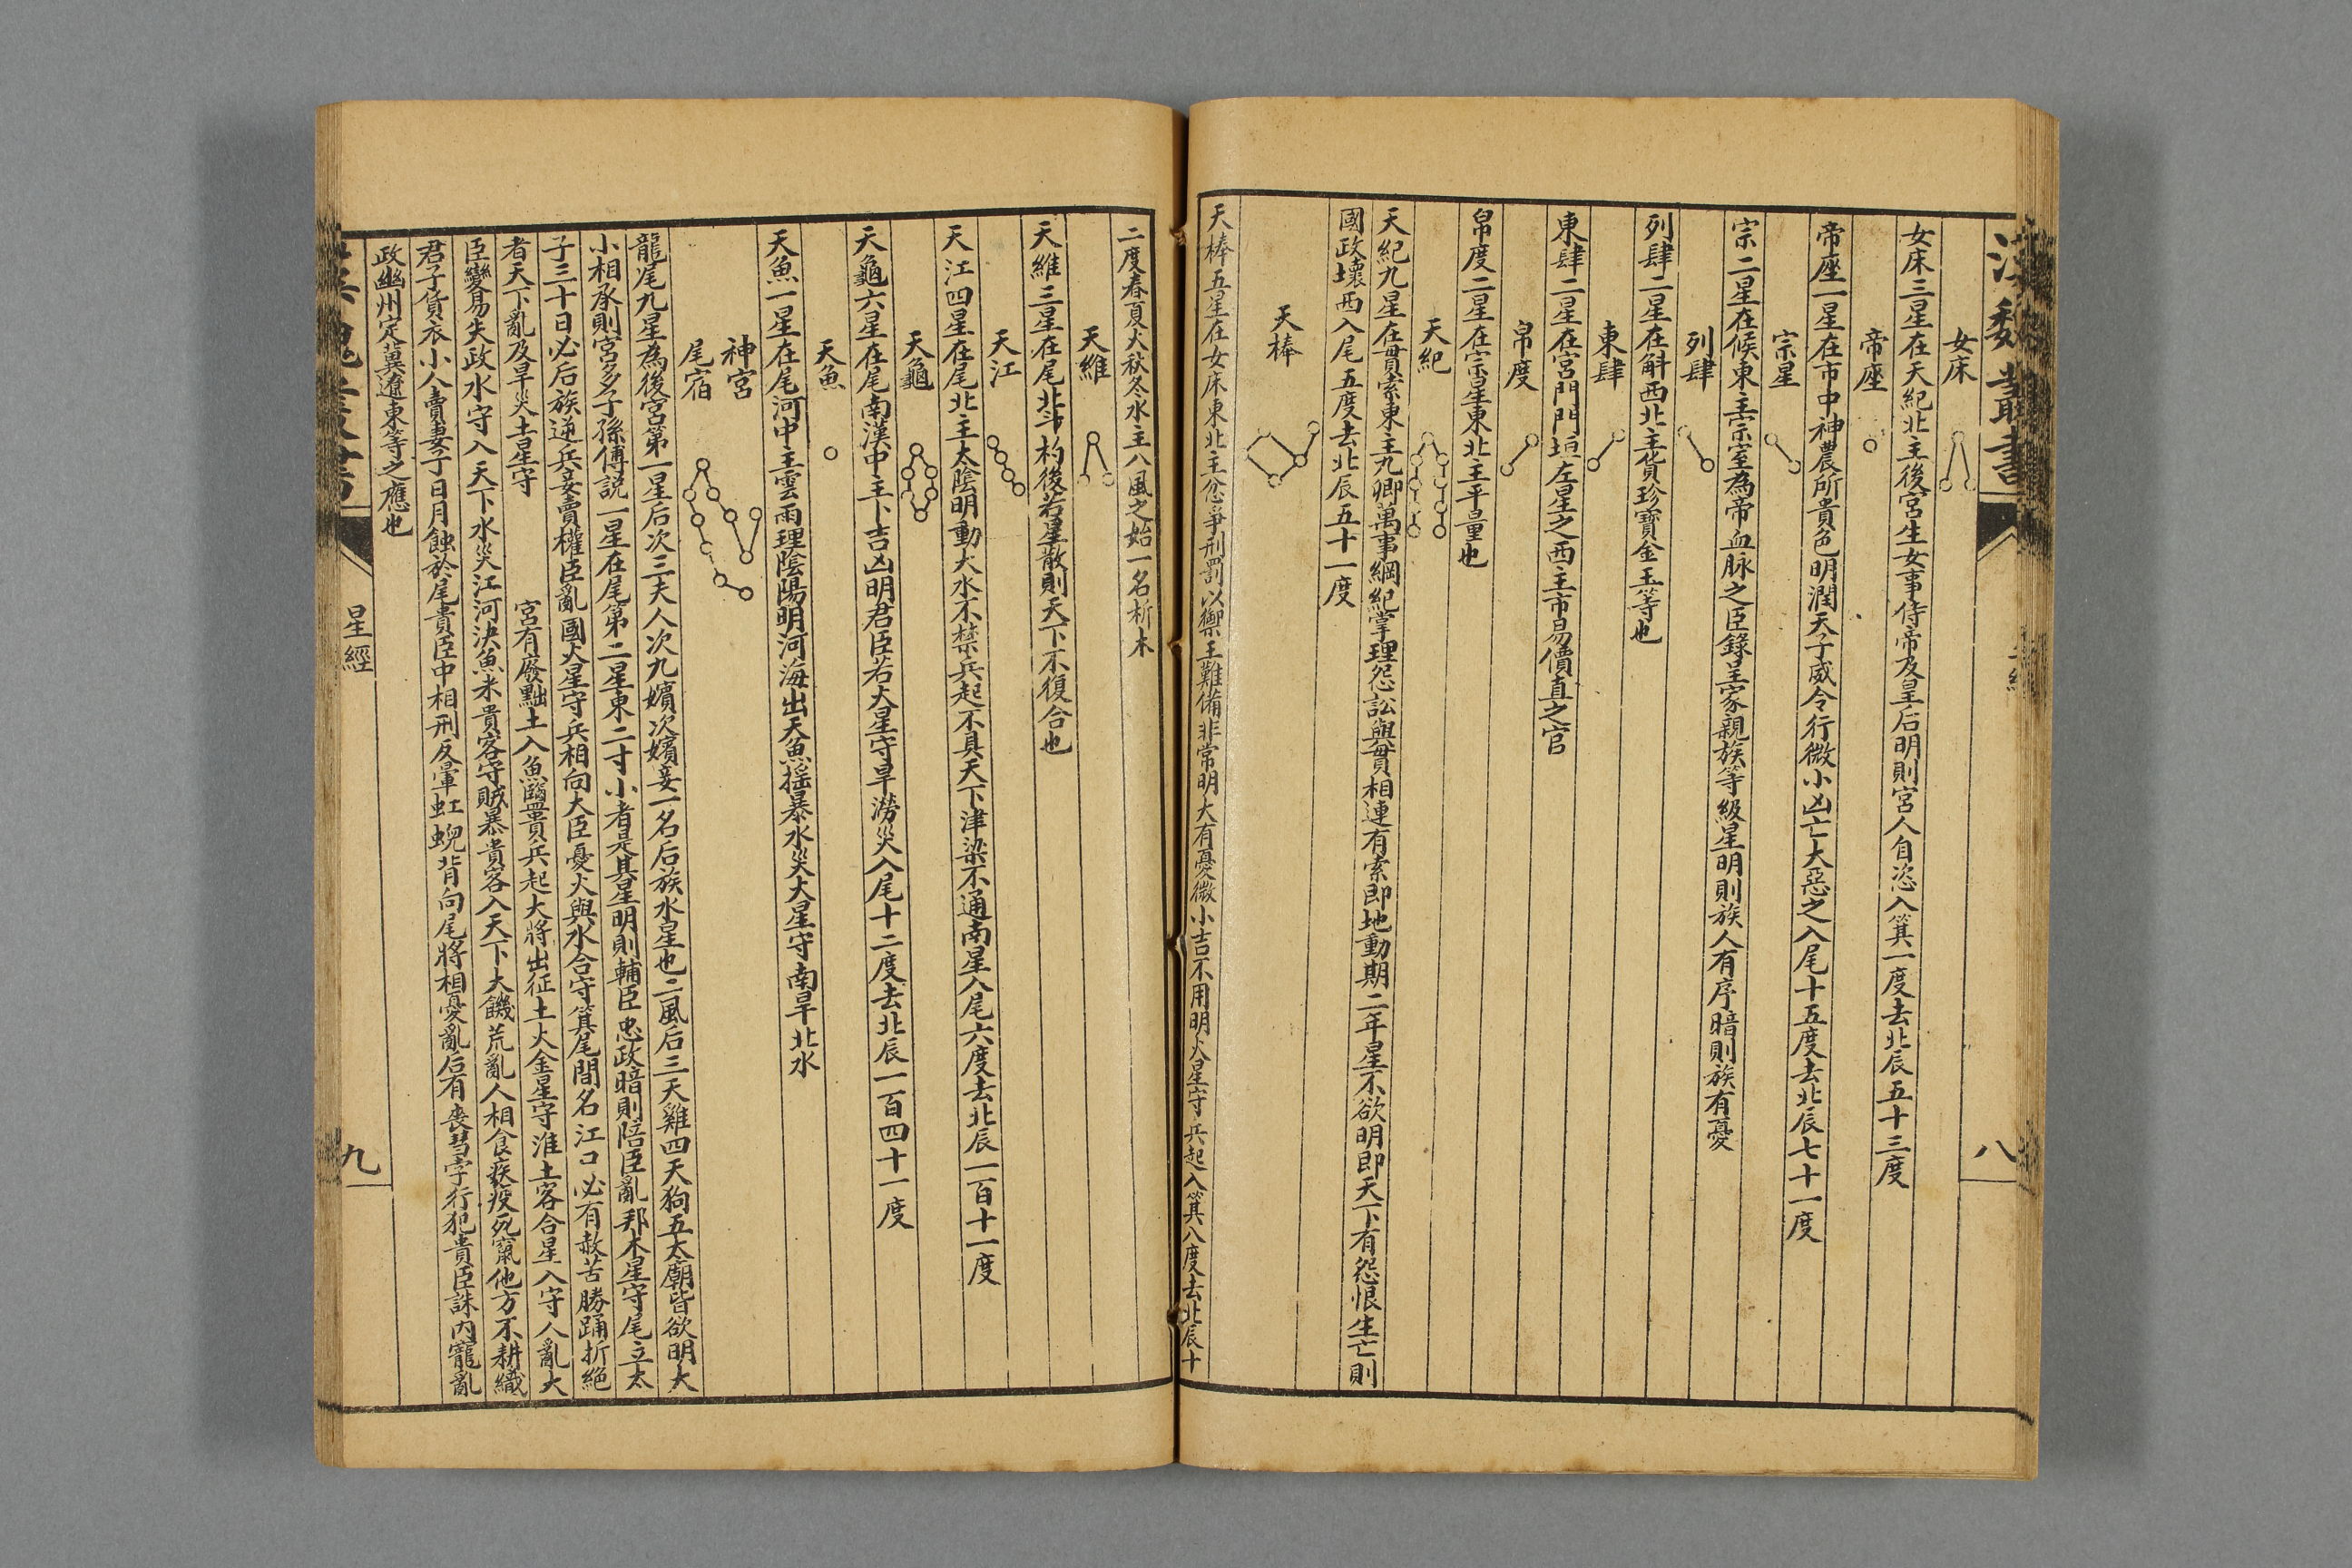 漢魏叢書
八
女床
女床三星在天紀北主後宮生女事侍帝及皇后明則宮人自恣入箕一度去北辰五十三度
帝座
帝座一星在市中神農所貴色明潤天子威令行微小凶亡大惡之入尾十五度去北辰七十一度
宗星
宗二星在候東主宗室為帝血脉之臣錄呈家親族等級星明則族人有序暗則族有憂
列肆
列肆二星在斛西北主貨珍寶金玉等也
東肆
東肆二星在宮門門垣左星之西主市易價直之官
帛度
帛度二星在宗星東北主平量也
天紀
天紀九星在貫索東主九卿萬事綱紀掌理怨訟與貫相連有索即地動期二年星不欲明即天下有怨恨生亡則
國政壞西入尾五度去北辰五十一度
天棒
天棒五星在女床東北主忿爭刑罰以禦王難備非常明大有憂微小吉不用明火星守兵起入箕八度去北辰十
二度春夏火秋冬水主八風之始一名析木
天維
天維三星在尾北斗杓後若星散則天下不復合也
天江
天江四星在尾北主太陰明動大水不禁兵起不具天下津梁不通南星入尾六度去北辰一百十一度
天龜
天龜六星在尾南漢中主卜吉凶明君臣若火星守旱澇災入尾十二度去北辰一百四十一度
天魚
天魚一星在尾河中主雲雨理陰陽明河海出天魚搖暴水災火星守南旱北水
神宮
尾宿
龍尾九星為後宮第一星后次三夫人次九嬪次嬪妾一名后族水星也二風后三天雞四天狗五太廟皆欲明大
小相承則宮多子孫傅說一星在尾第二星東二寸小者是其星明則輔臣忠政暗則陪臣亂邦木星守尾立太
子三十日必后族逆兵妾賣權臣亂國火星守兵相向大臣憂火與水合守箕尾間名江口必有赦苦勝踊折絕
者天下亂及旱災土星守 宮有廢黜土入魚鹽貴兵起大將出征土火金星守淮土客合星入守人亂大
臣變易失政水守入天下水災江河決魚米貴客守賊暴貴客入天下大饑荒亂人相食疾疫死竄他方不耕織
君子貨衣小人賣妻子日月蝕於尾貴臣中相刑反暈虹蜺背向尾將相憂亂后有喪彗孛行犯貴臣誅內寵亂
政幽州定冀遼東等之應也
星經
九